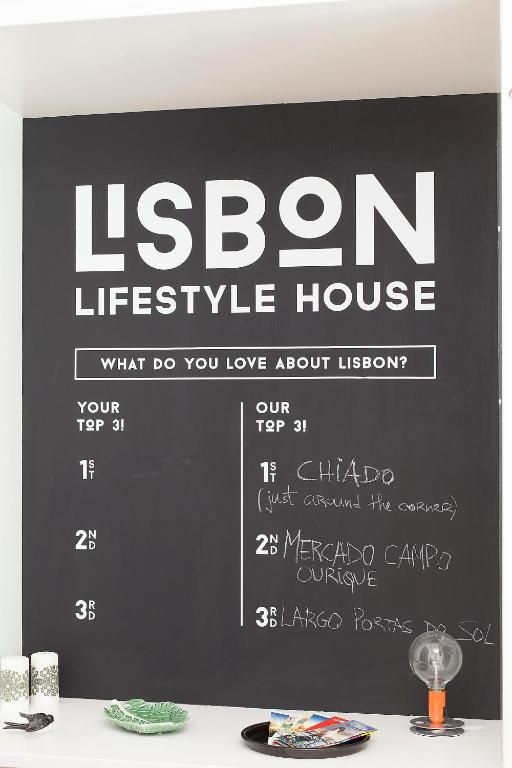 LISBON
LIFESTYLE HOUSE
WHAT DO YOU LOVE ABOUT LISBON?
YOUR
TOP 3!
1ST
2ND
3RD
OUR
TOP 3!
1ST CHIADO
(just around the corner)
2ND MERCADO CAMPO
OURIQUE
3RD LARGO PORTAS DO SOL